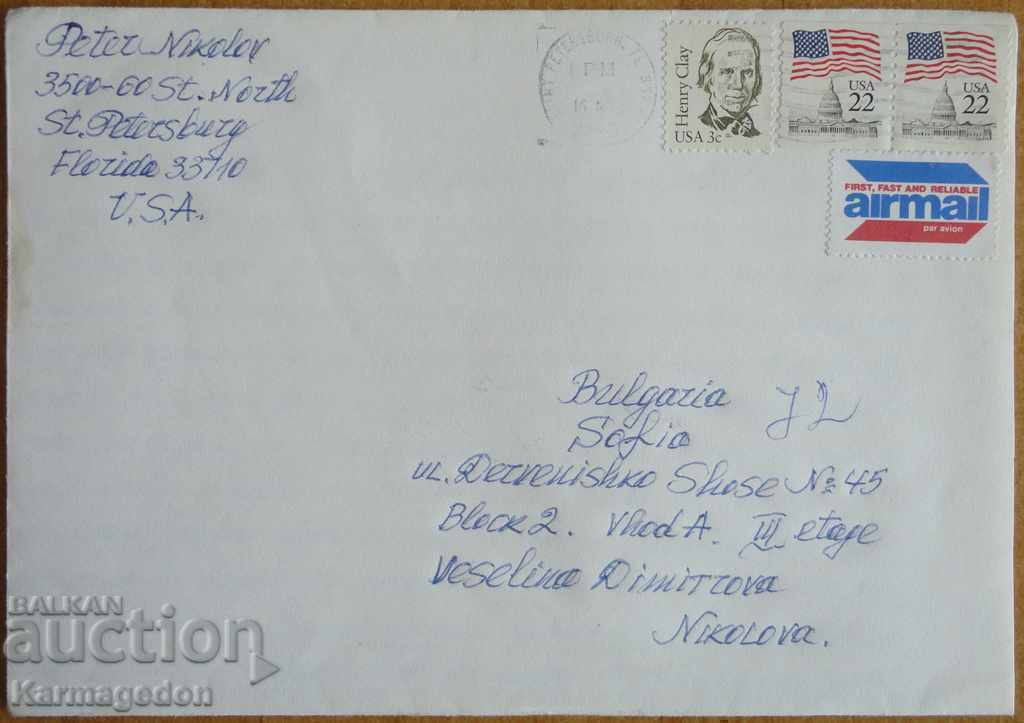 Peter Nikolov
3500-60 St. North
St. Petersburg
Florida 33710
U.S.A.
PETERSBURG, FL
Henry Clay
USA 3c
USA
22
USA
22
FIRST, FAST AND RELIABLE
airmail
par avion
Bulgaria
Sofia
ul. Dervenishko Shose № 45
Block 2. Vhod A. III etage
Veselina Dimitrova
Nikolova.
BALKAN
auction
Karmagedon